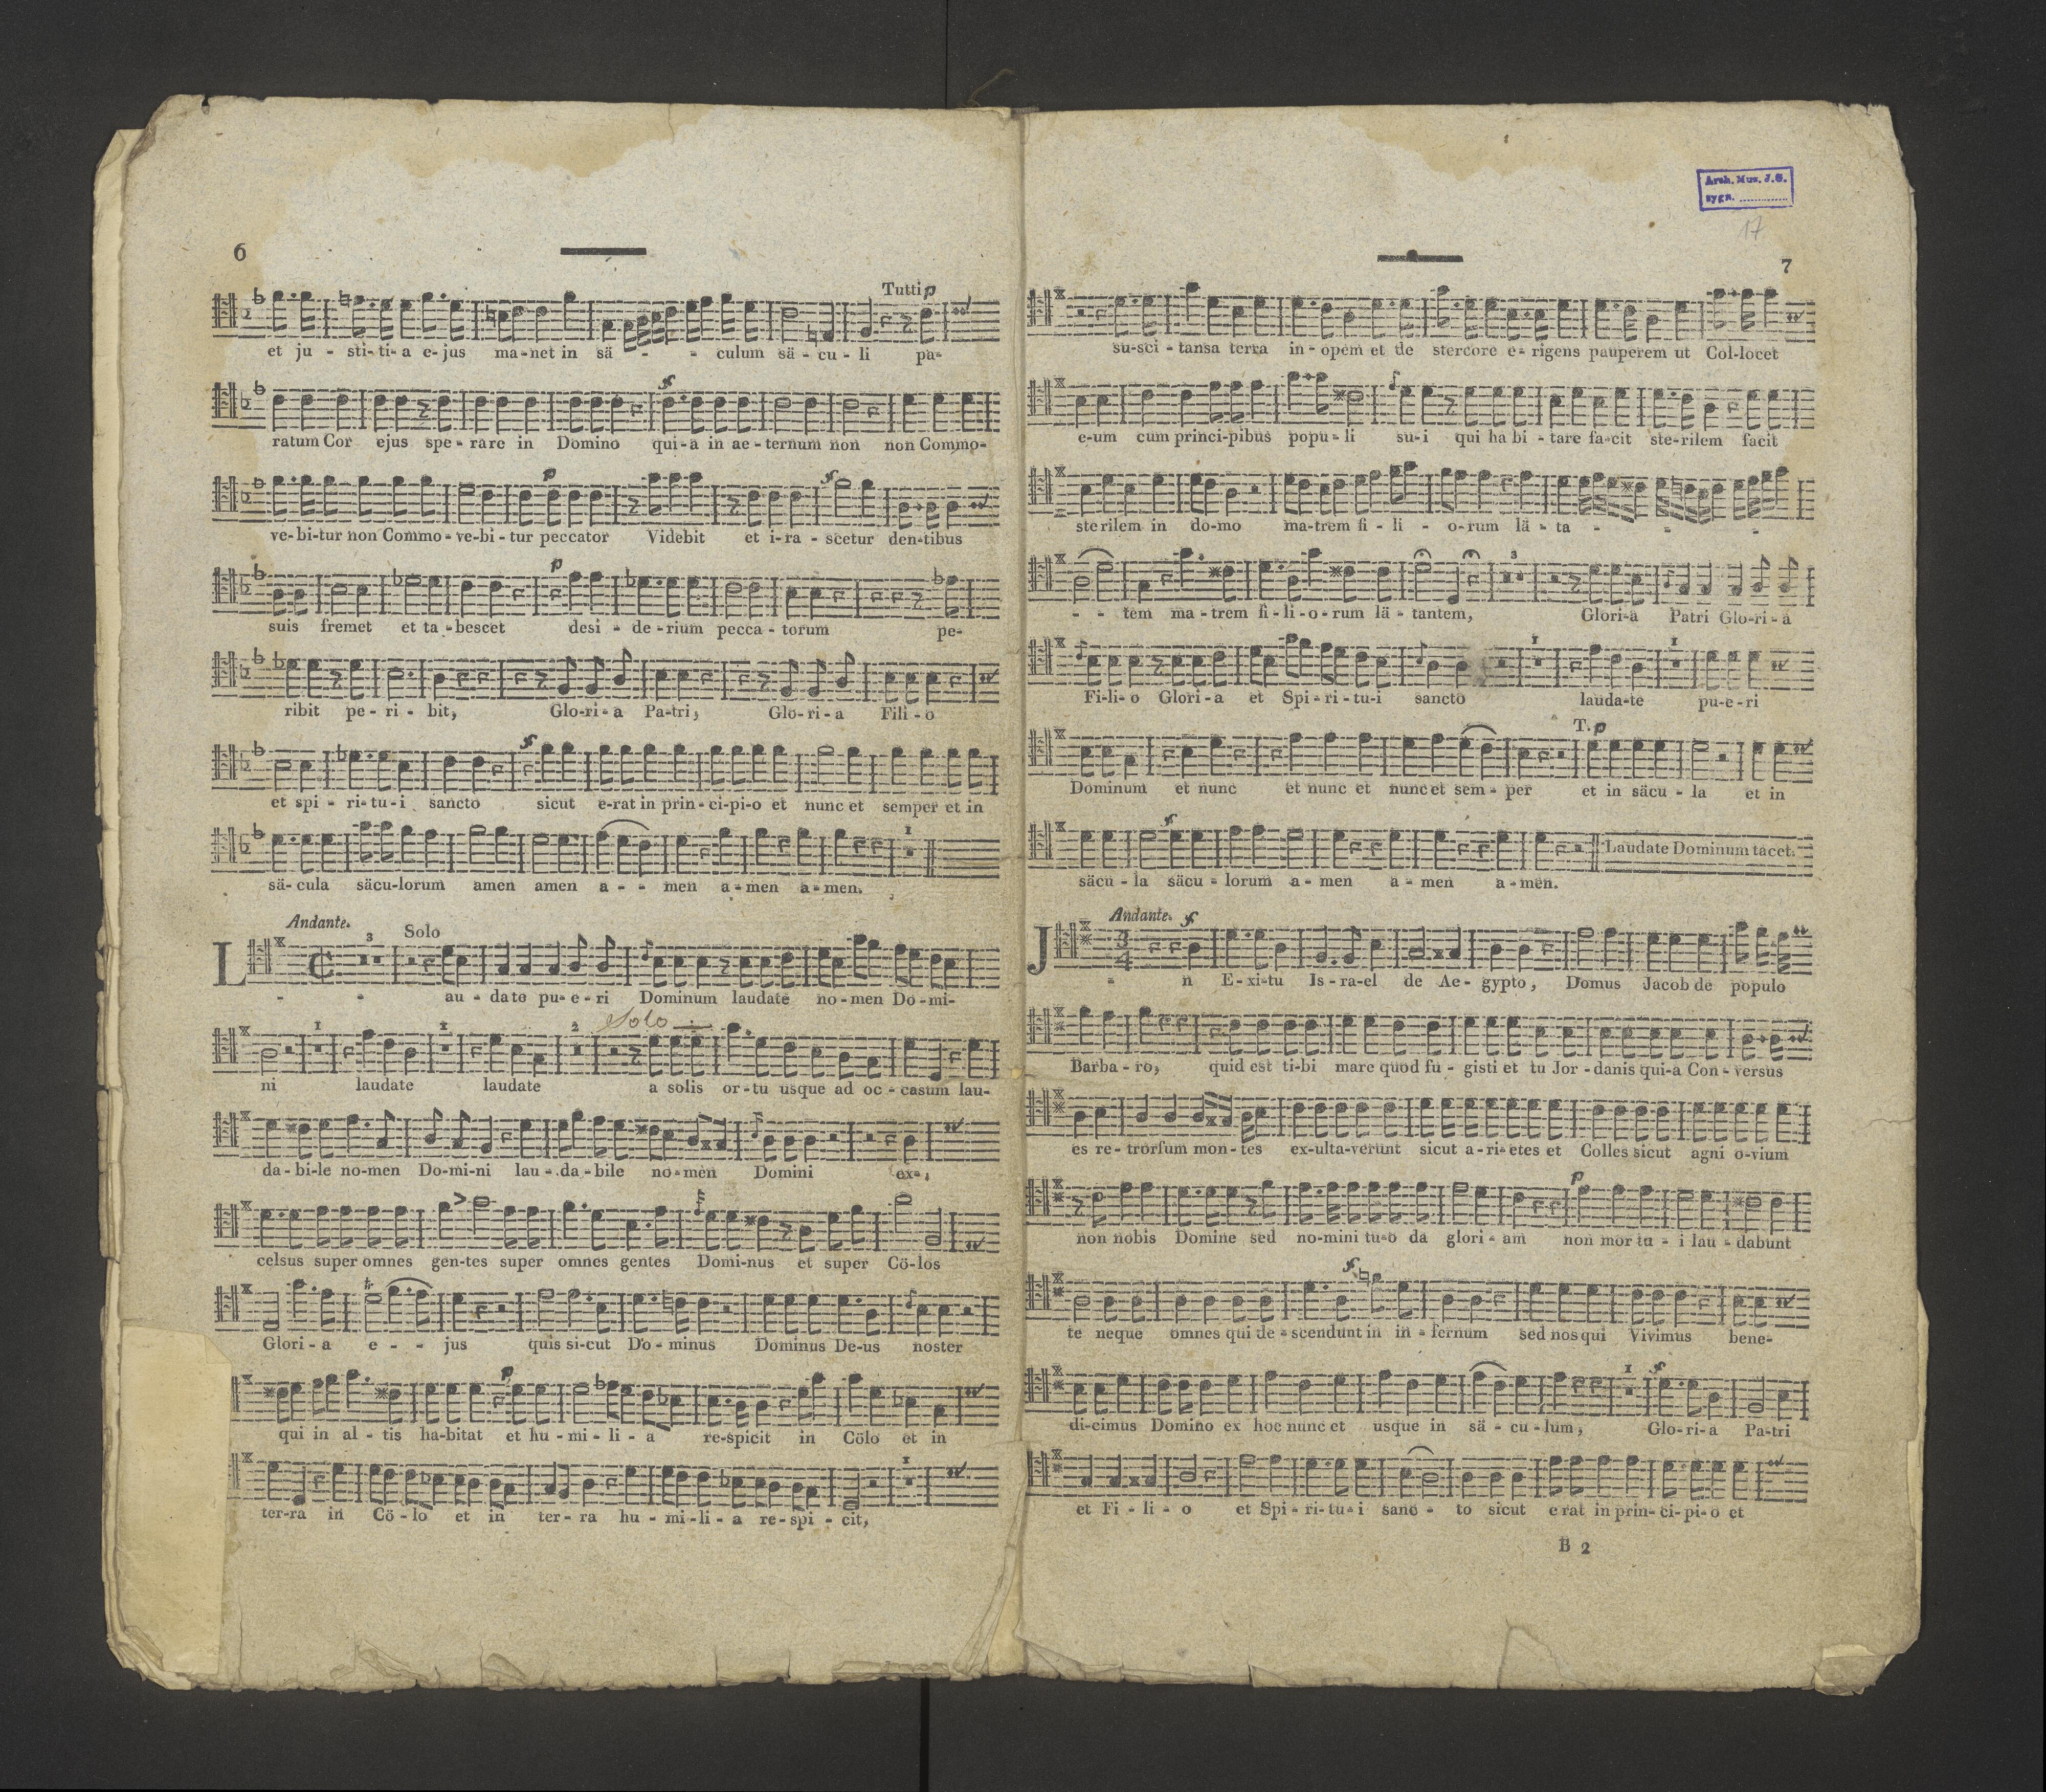 6
Tutti p
et ju - sti- ti- a e- jus ma-net in sä - - - culum sä - cu - li pa-
ratum Cor ejus spe - rare in Domino qui-a in ae - ternum non non Commo-
ve-bi-tur non Commo - ve-bi - tur peccator Videbit et i-ra - scetur den-tibus
suis fremet et ta - bescet desi - de-rium pecca - torum pe-
ribit pe - ri - bit, Glo-ri-a Pa-tri, Glo-ri-a Fili-o
et spi - ri-tu-i sancto sicut e-rat in prin-ci-pi-o et nunc et semper et in
sä-cula säcu-lorum amen amen a - - men a-men a-men.
Andante.
3 Solo
L - - au - date pu-e-ri Dominum laudate no-men Do-mi-
1 1 2 Solo
ni laudate laudate a solis or-tu usque ad oc - casum lau-
da-bi-le no-men Do-mi-ni lau - da-bile no-men Domini ex-
celsus super omnes gen-tes super omnes gentes Domi-nus et super Cö-los
Glori-a e - - jus quis si-cut Do-minus Dominus De-us noster
qui in al-tis ha-bitat et hu-mi-li-a re-spicit in Cölo et in
ter-ra in Cö-lo et in ter-ra hu-mi-li-a re-spi-cit,
Arch. Muz. J. G.
sygn. ..............
17
7
su-sci - tansa terra in - opem et de stercore e-rigens pauperem ut Col-locet
e-um cum princi-pibus popu-li su-i qui ha bi - tare fa-cit ste-rilem facit
sterilem in do-mo ma-trem fi - li - o-rum lä - ta - - - -
- - tem ma-trem fi-li-o-rum lä-tantem, Glori-a Patri Glo-ri-a
Fi-li-o Glori-a et Spi-ri-tu-i sancto lauda-te pu-e-ri
T. p
Dominum et nunc et nunc et nunc et sem-per et in säcu-la et in
Laudate Dominum tacet.
säcu-la säcu-lorum a-men a-men a-men.
Andante. f
J - n E-xi-tu Is-ra-el de Ae-gypto, Domus Jacob de populo
Barba-ro, quid est ti-bi mare quod fu-gisti et tu Jor-danis qui-a Con-versus
es re-trorsum mon-tes ex-ulta-verunt sicut a-ri-etes et Colles sicut agni o-vium
non nobis Domine sed no-mini tu-o da glori-am non mor tu-i lau-dabunt
te neque omnes qui de-scendunt in in-fernum sed nos qui Vivimus bene-
di-cimus Domino ex hoc nunc et usque in sä-cu-lum, Glo-ri-a Pa-tri
et Fi-li-o et Spi-ri-tu-i sanc-to sicut e rat in prin-ci-pi-o et
B 2